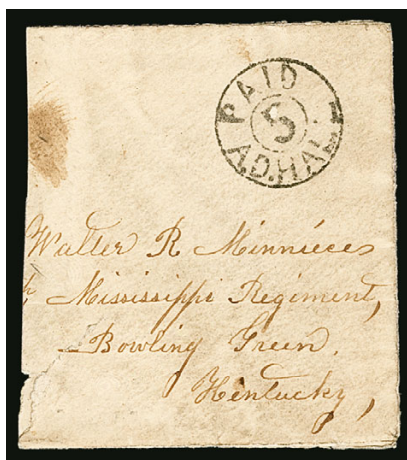 PAID
5
A.D. HALL.
Walter R Minnieces
Mississippi Regiment,
Bowling Green.
Kentucky,